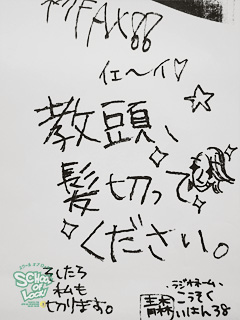 イェ〜イ♡
教頭、
髪切って
ください。
そしたら
私も
切ります。
ラジオネーム
こうそく
いはん38
青森
SCHOOL
OF
LOCK!